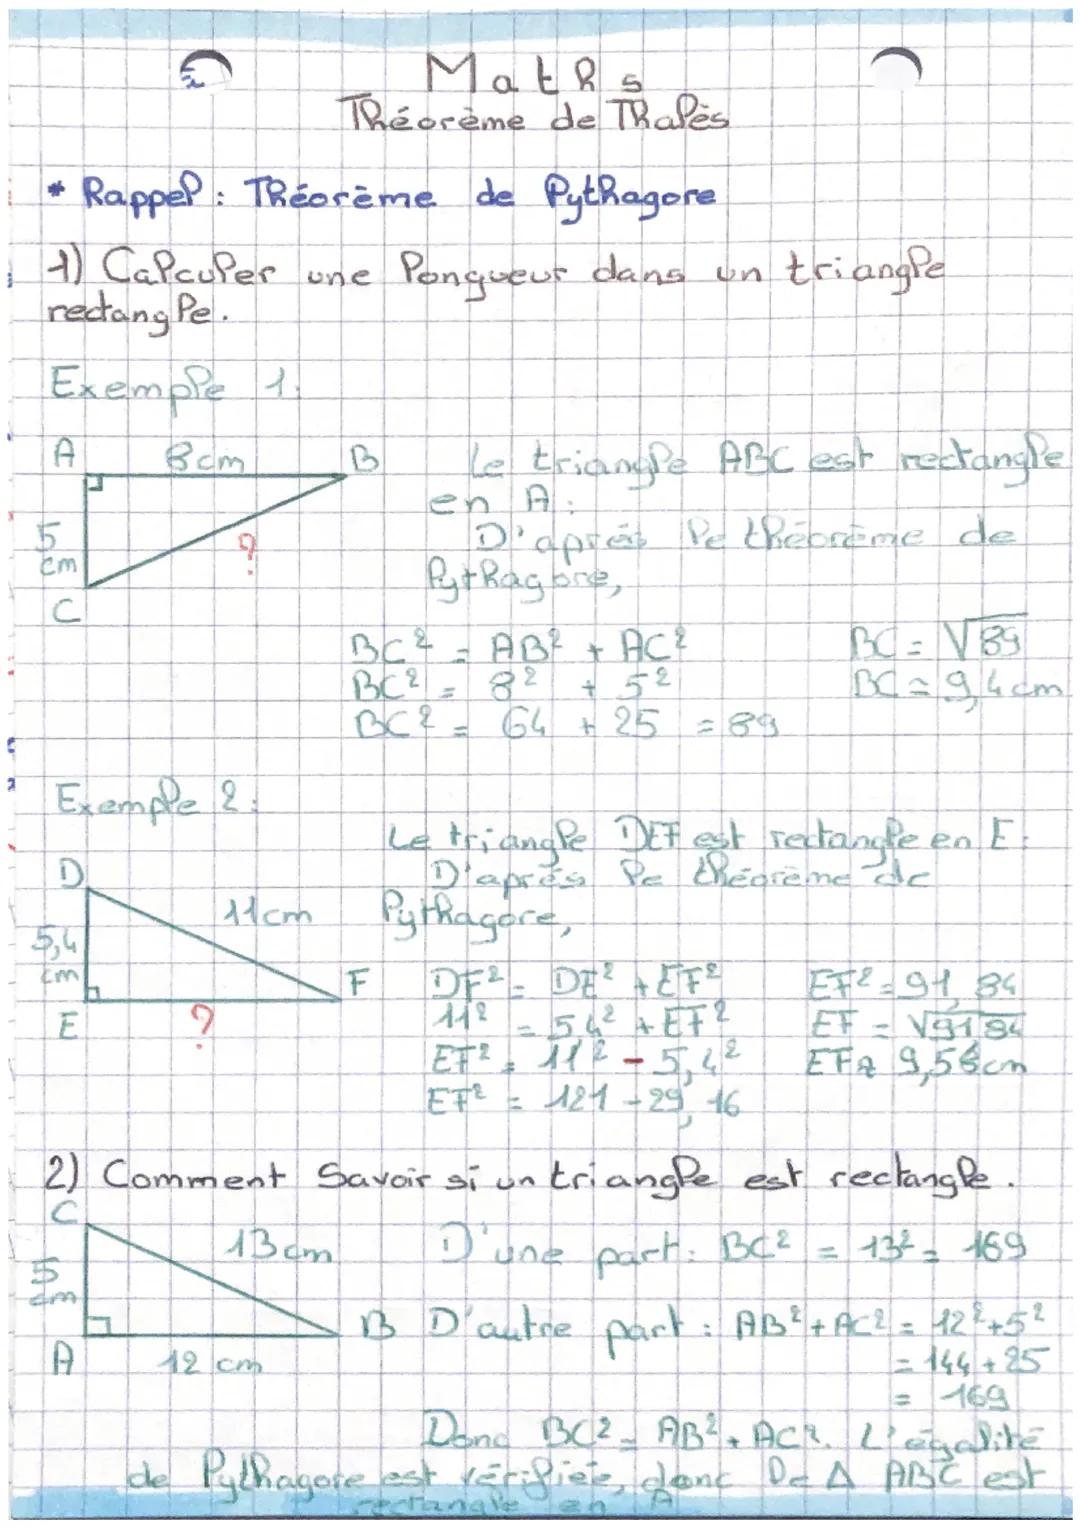 Maths
Théorème de Thalès
* Rappel : Théorème de Pythagore
1) Calculer une longueur dans un triangle
rectangle.
Exemple 1:
A 8cm B
5
cm
?
C
Le triangle ABC est rectangle
en A:
D'après le théorème de
Pythagore,
BC² = AB² + AC²
BC² = 8² + 5²
BC² = 64 + 25 = 89
BC = √89
BC ≈ 9,4cm
Exemple 2:
D
11cm
5,4
cm
F
E ?
Le triangle DEF est rectangle en E:
D'après le théorème de
Pythagore,
DF² = DE² + EF²
11² = 5,4² + EF²
EF² = 11² - 5,4²
EF² = 121 - 29,16
EF² = 91,84
EF = √91,84
EF ≈ 9,58cm
2) Comment Savoir si un triangle est rectangle.
C
13cm
5
cm
B
A 12 cm
D'une part: BC² = 13² = 169
D'autre part : AB² + AC² = 12² + 5²
= 144 + 25
= 169
Donc BC² = AB² + AC². L'égalité
de Pythagore est vérifiée, donc le Δ ABC est
rectangle en A